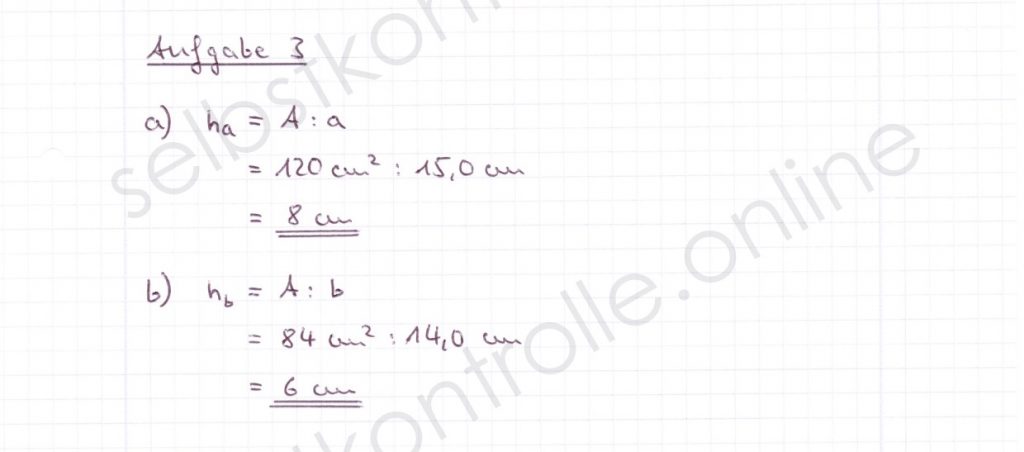 Aufgabe 3
a) hₐ = A : a
= 120 cm² : 15,0 cm
= 8 cm
b) h_b = A : b
= 84 cm² : 14,0 cm
= 6 cm
selbstkontrolle.online